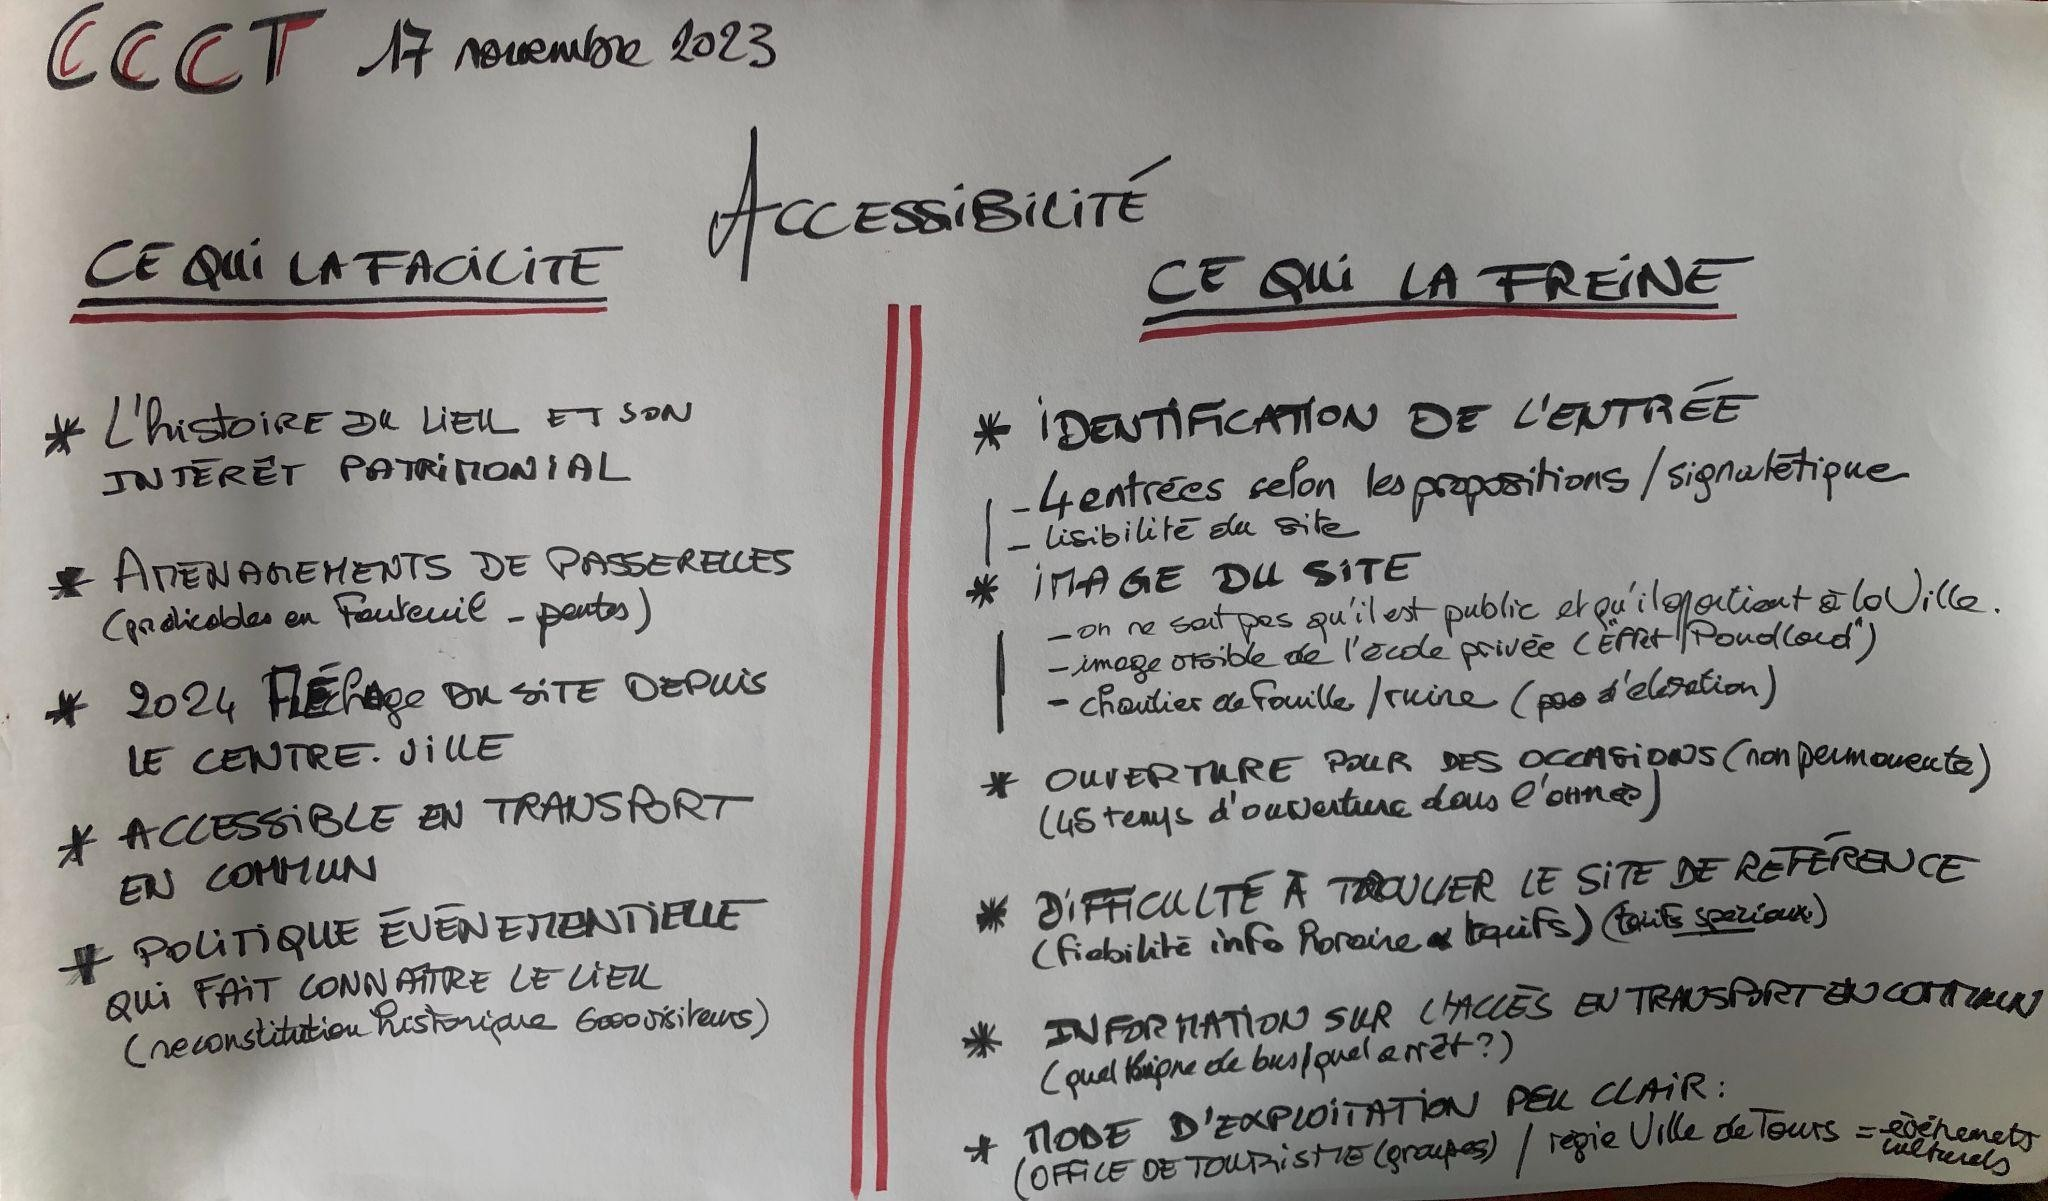 CCCT 17 novembre 2023
ACCESSIBILITÉ
CE QUI LA FACILITE
* L'histoire du lieu et son
intérêt patrimonial
* Aménagements de passerelles
(praticables en fauteuil - pentes)
* 2024 Fléchage du site depuis
le centre-ville
* Accessible en transport
en commun
* Politique événementielle
qui fait connaître le lieu
(reconstitution historique 6000 visiteurs)
CE QUI LA FREINE
* Identification de l'entrée
- 4 entrées selon les propositions / signalétique
- lisibilité du site
* Image du site
- on ne sait pas qu'il est public et qu'il appartient à la Ville.
- image visible de l'école privée (Effet "Poudlard")
- chantier de fouille / ruine (pas d'élévation)
* Ouverture pour des occasions (non permanente)
(45 temps d'ouverture dans l'année)
* Difficulté à trouver le site de référence
(fiabilité info horaire & tarifs) (tarifs spéciaux)
* Information sur l'accès en transport en commun
(quel ligne de bus / quel arrêt ?)
* Mode d'exploitation peu clair :
(Office de Tourisme (groupes) / régie Ville de Tours = événemets
culturels